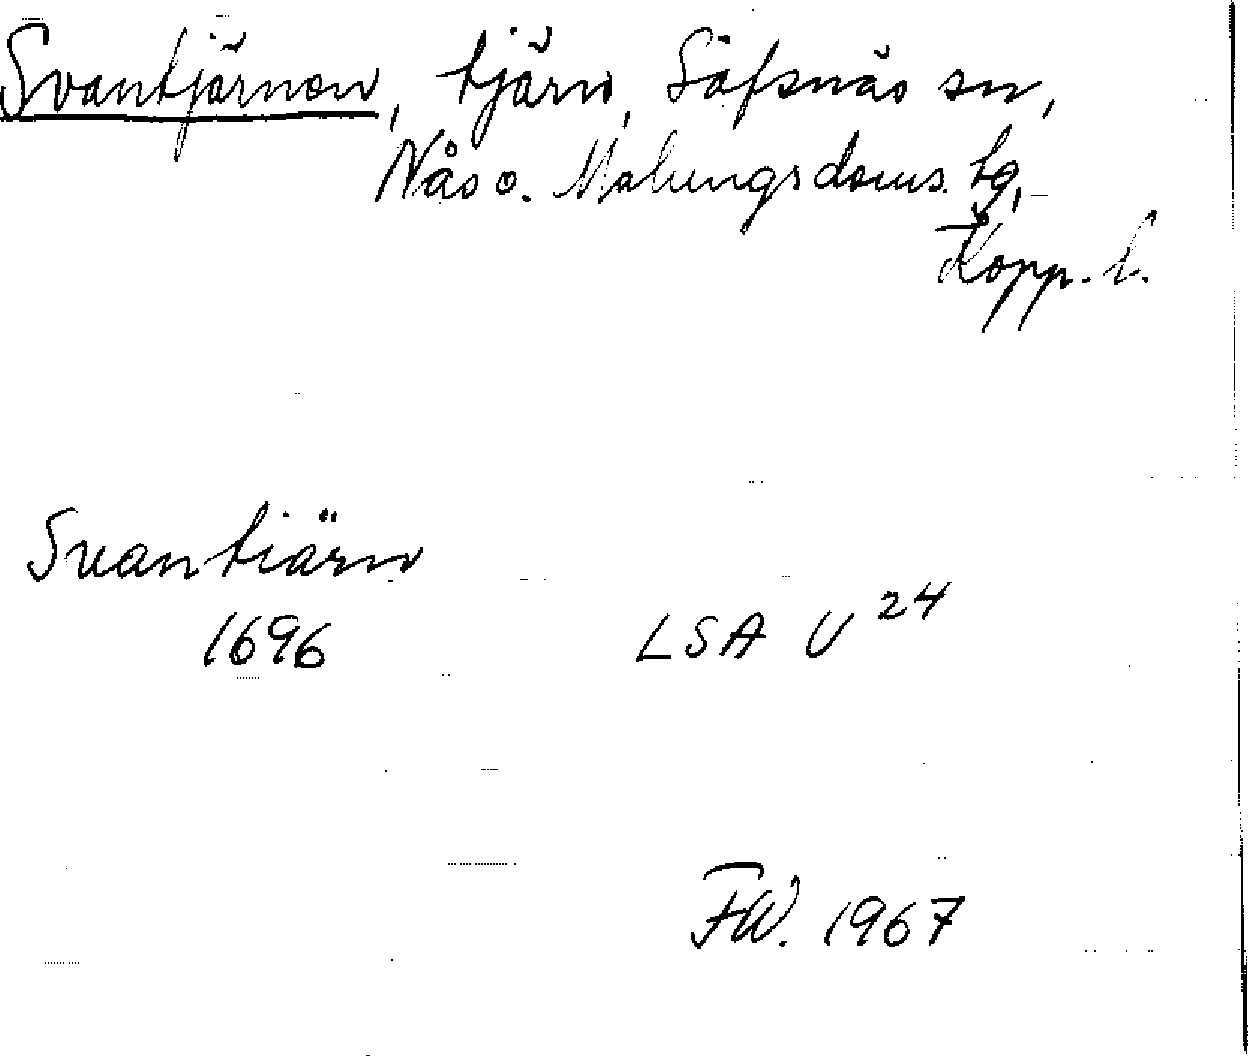 Svantjärnen, tjärn, Säfsnäs sn,
Nås o. Malungs doms. tg,
Kopp. l.
Svantiärn
1696 LSA U 24
FW. 1967